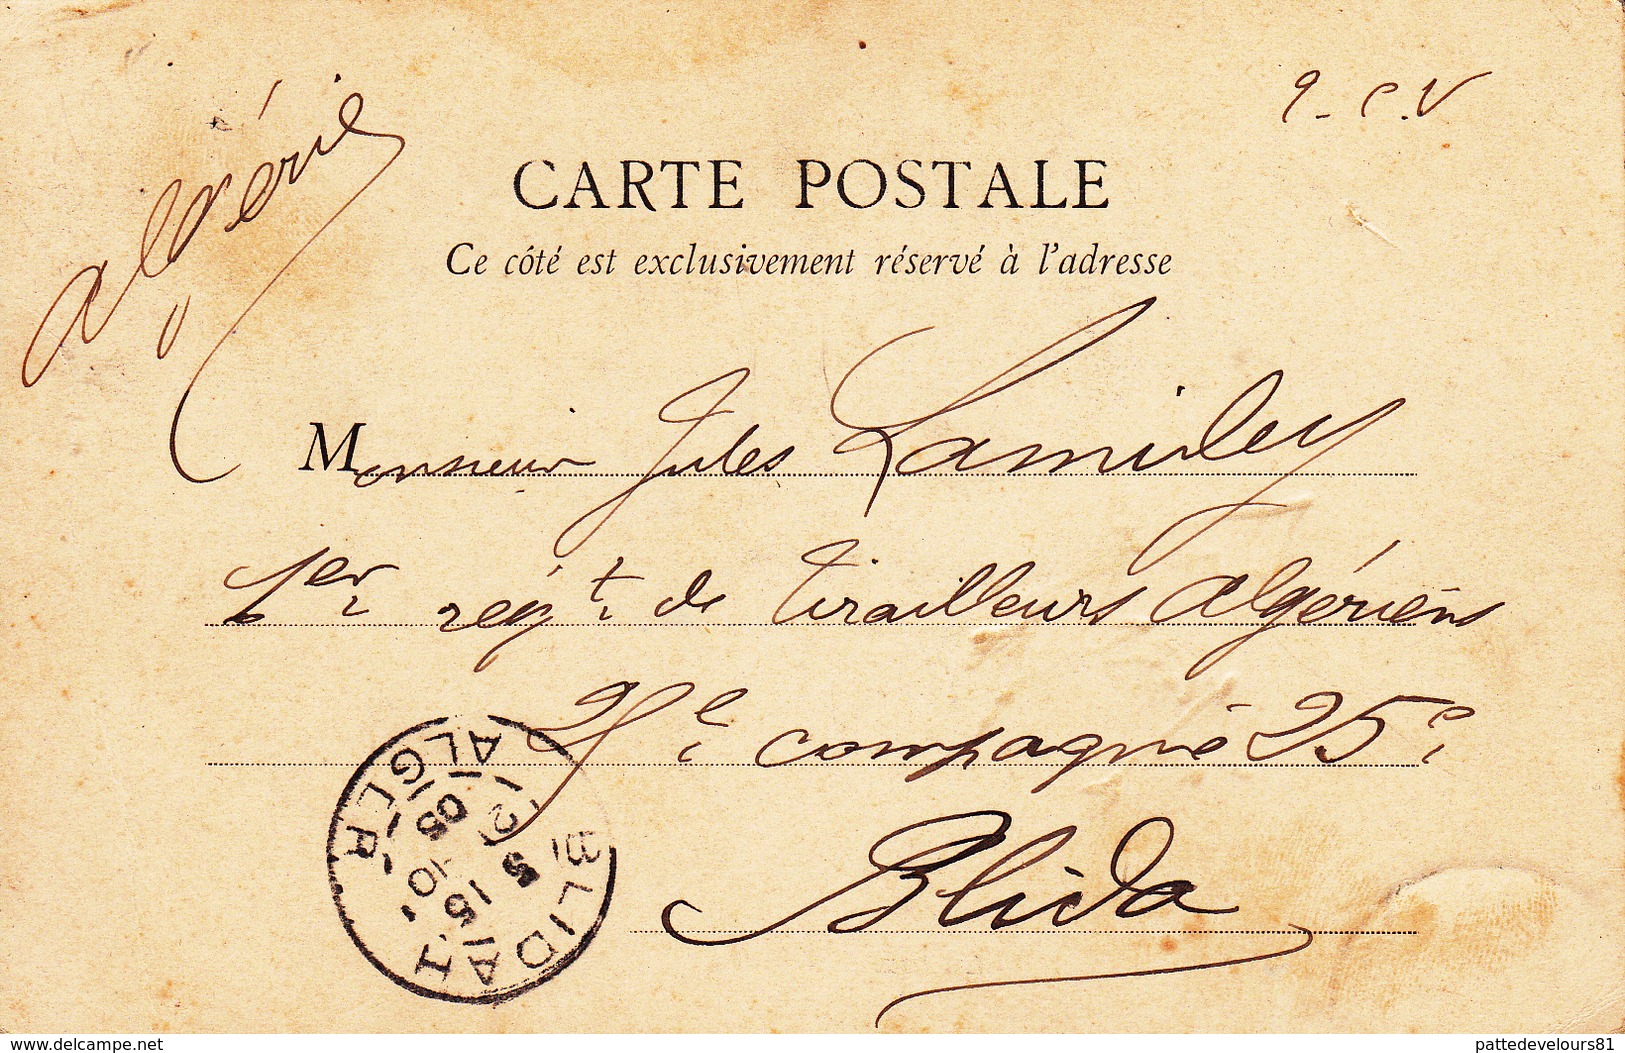 Algérie
CARTE POSTALE
Ce côté est exclusivement réservé à l'adresse
Monsieur Jules
1er régt. de Tirailleurs Algériens
25e compagnie 25e
Blida
BLIDAH
ALGER
15
10
05
www.delcampe.net
pattedevelours81